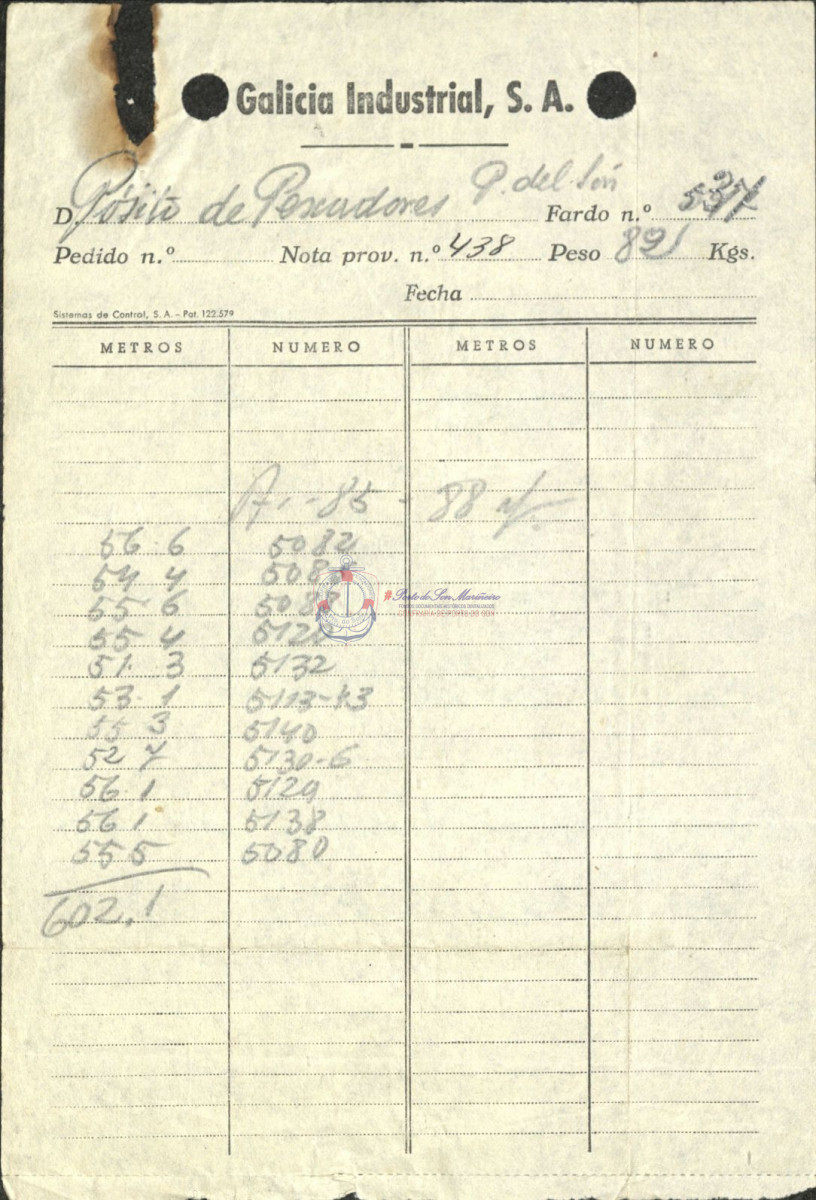 Galicia Industrial, S. A.
D. Pósito de Pescadores P. del Són Fardo n.º
Pedido n.º Nota prov. n.º 438 Peso 89 Kgs.
Fecha
Sistemas de Control, S. A. - Pat. 122.579
METROS NUMERO METROS NUMERO
85 - 88
56 6 5082
54 4
55 6
55 4
51. 3 5132
53. 1 5113-43
55 3 5140
52 7 5130-6
56. 1 5129
56. 1 5138
55 5 5080
602.1
Porto do Son Mariñeiro